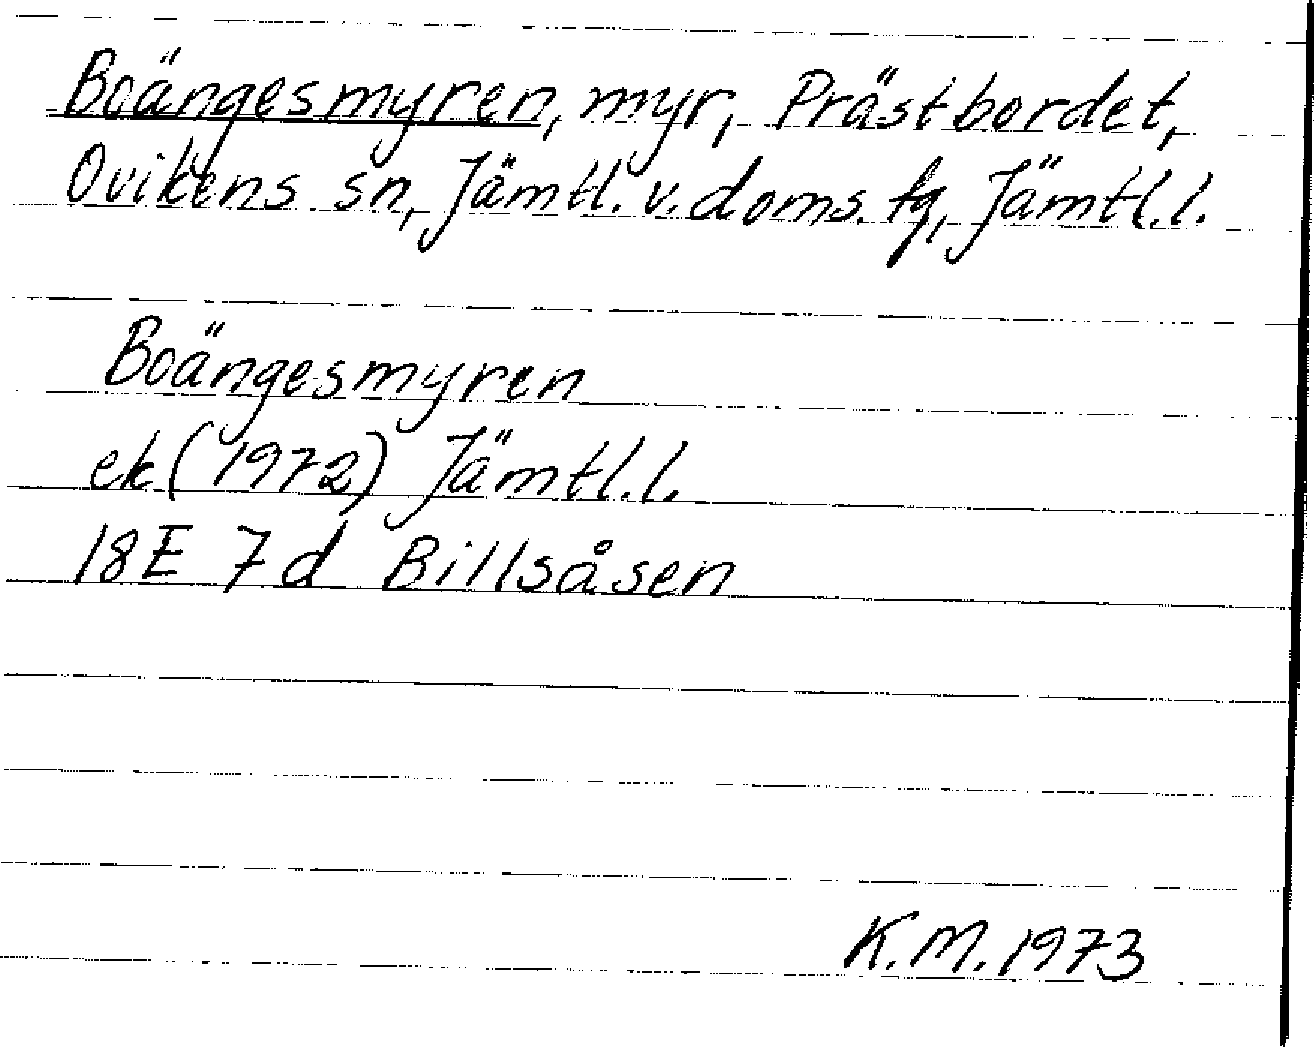 Boängesmyren, myr, Prästbordet,
Ovikens sn, Jämtl. v. doms. fg, Jämtl. l.
Boängesmyren
ek (1972) Jämtl. l.
18E 7d Billsåsen
K. M. 1973